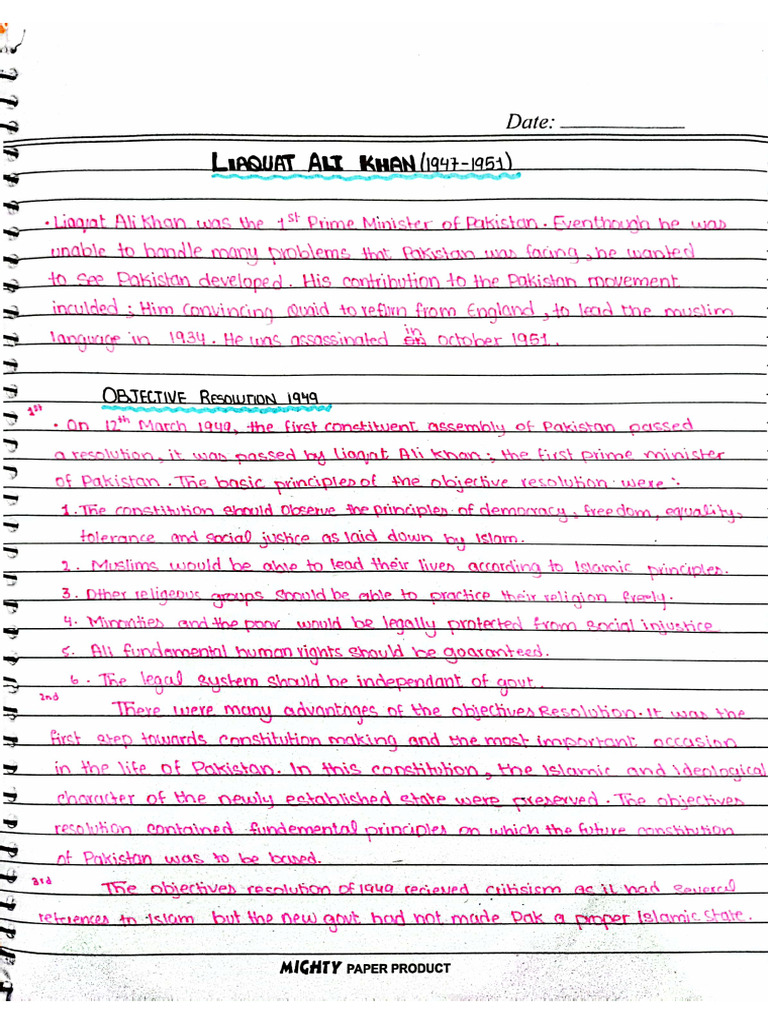 Date:
LIAQUAT ALI KHAN (1947-1951)
• Liaqat Ali Khan was the 1st Prime Minister of Pakistan. Eventhough he was
unable to handle many problems that Pakistan was facing, he wanted
to see Pakistan developed. His contribution to the Pakistan movement
inculded ; Him convincing Quaid to return from England, to lead the muslim
language in 1934. He was assassinated in october 1951.
OBJECTIVE RESOLUTION 1949
1st
• On 12th March 1949, the first constituent assembly of Pakistan passed
a resolution, it was passed by Liaqat Ali Khan ; the first prime minister
of Pakistan. The basic principles of the objective resolution were :
1. The constitution should observe the principles of democracy, freedom, equality,
tolerance and social justice as laid down by Islam.
2. Muslims would be able to lead their lives according to Islamic principles.
3. Other religeous groups should be able to practice their religion freely.
4. Minorities and the poor would be legally protected from social injustice
5. All fundamental human rights should be goaranteed.
6. The legal system should be independant of govt.
2nd
There were many advantages of the objectives Resolution. It was the
first step towards constitution making and the most important occasion
in the life of Pakistan. In this constitution, the Islamic and ideological
character of the newly established state were preserved. The objectives
resolution contained fundemental principles on which the future constitution
of Pakistan was to be based.
3rd
The objectives resolution of 1949 recieved critisism as it had several
references to Islam but the new govt had not made Pak a proper Islamic state.
MIGHTY PAPER PRODUCT